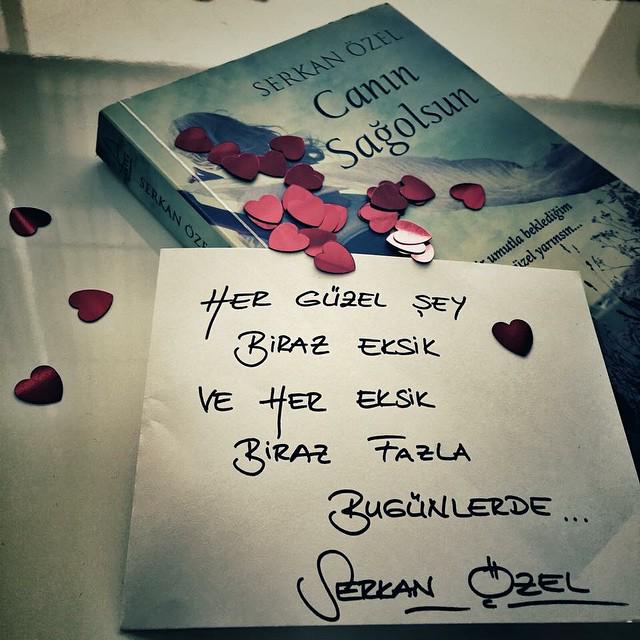 SERKAN ÖZEL
Canın
Sağolsun
SERKAN ÖZEL
umutla beklediğim
güzel yarınsın...
HER GÜZEL ŞEY
BİRAZ EKSİK
VE HER EKSİK
BİRAZ FAZLA
BUGÜNLERDE...
SERKAN ÖZEL